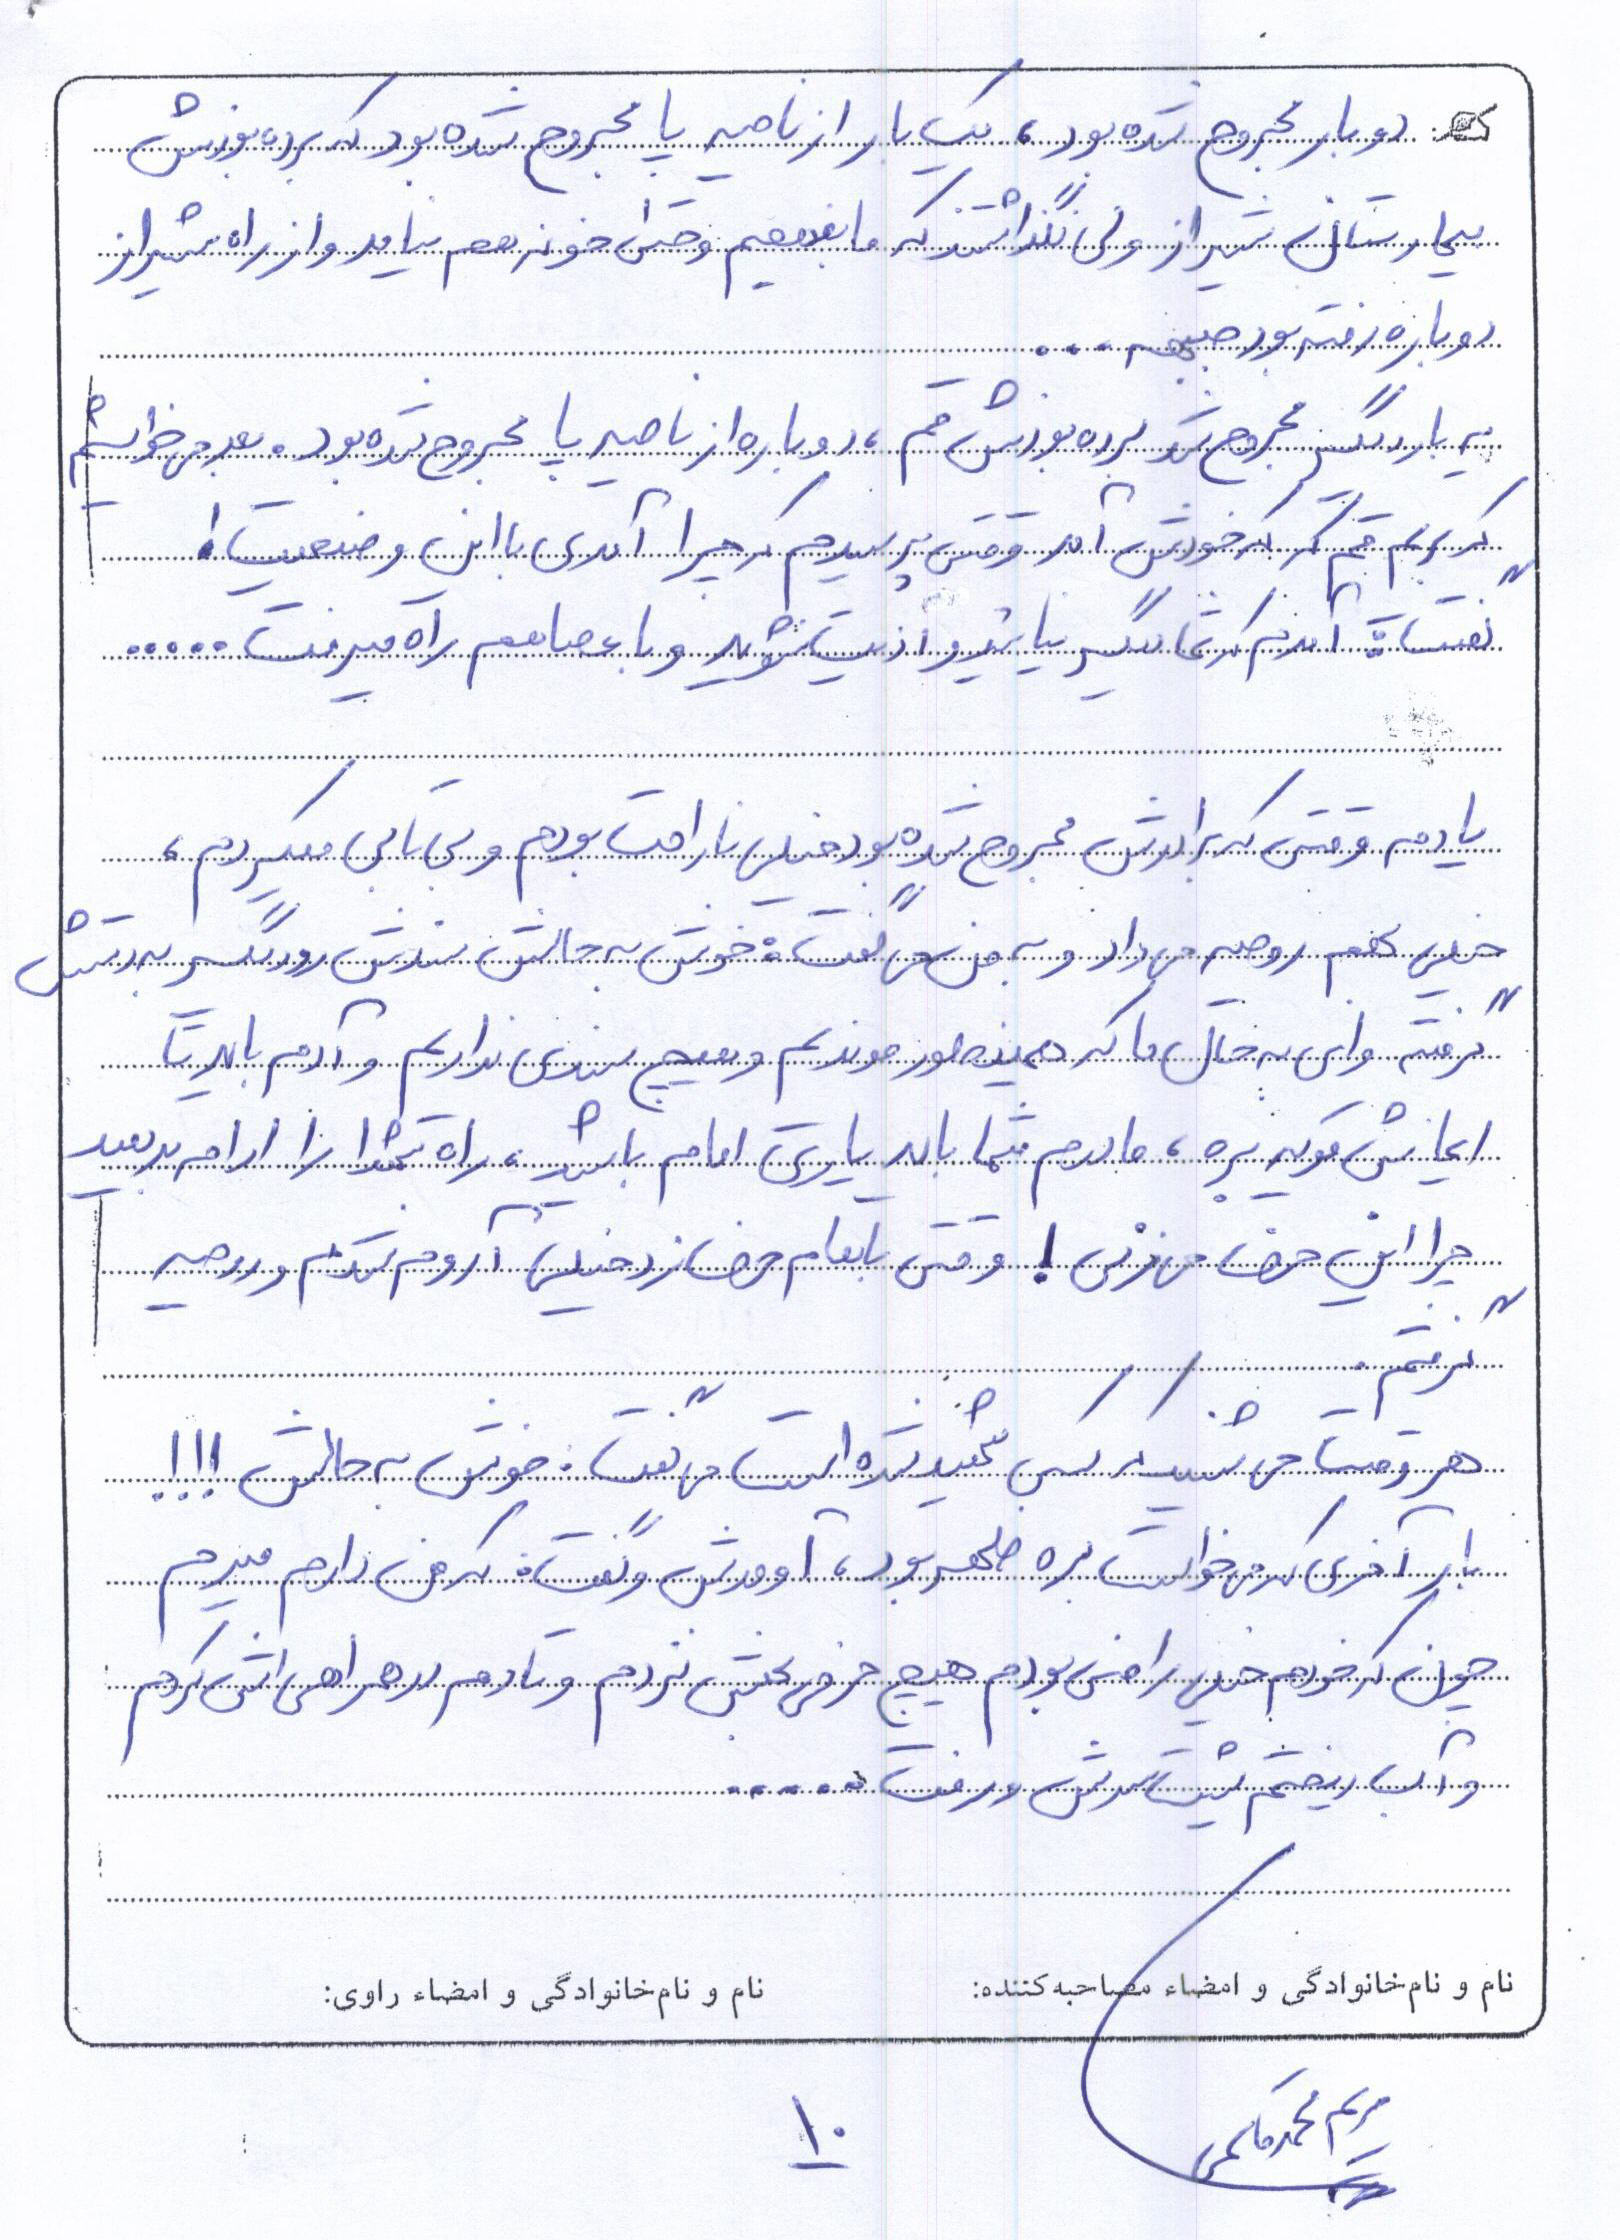 دوبار مجروح شده بود، یک بار از ناحیه پا مجروح شده بود که برده بودنش
بیمارستان شیراز ولی نگذاشتند که ما بفهمیم و حتی خونه هم نیامد و از راه شیراز
دوباره رفته بود جبهه ...
یه بار دیگر مجروح شد برده بودنش قم، دوباره از ناحیه پا مجروح شده بود. بعد می خواستیم
که بریم قم که خودش آمد وقتی پرسیدم که چرا آمدی با این وضعیت!
گفت: آمدم که شما دیگر نیایید و اذیت نشوید و با عصا هم راه میرفت .....
یادمه وقتی که برادرش مجروح شده بود خیلی ناراحت بودم و بی تابی میکردم،
خیلی بهم روحیه می داد و به من می گفت: خوش به حالش سندش رو دیگر به دستش
گرفته وای به حال ما که همینطور موندیم و هیچ سندی نداریم و آدم باید تا
ایمانش قویه بره، مادرم شما باید یاریی امام باشید، راه شهدا را ادامه بدهید
چرا این حرف می زنی! وقتی باهام حرف زد خیلی آروم شدم و روحیه
گرفتم.
هر وقت می شنید که کسی شهید شده است می گفت: خوش به حالش !!!
بار آخری که می خواست بره حلچه بود، اومدش و گفت: که من دارم میرم
چون که خودم خیلی راضی بودم هیچ حرفی بهش نزدم و تا دم در همراهی اش کردم
و آب ریختم پشت سرش و رفت .....
نام و نام‌خانوادگی و امضاء مصاحبه‌کننده:
نام و نام‌خانوادگی و امضاء راوی:
مریم محمدکاظمی
۱۰